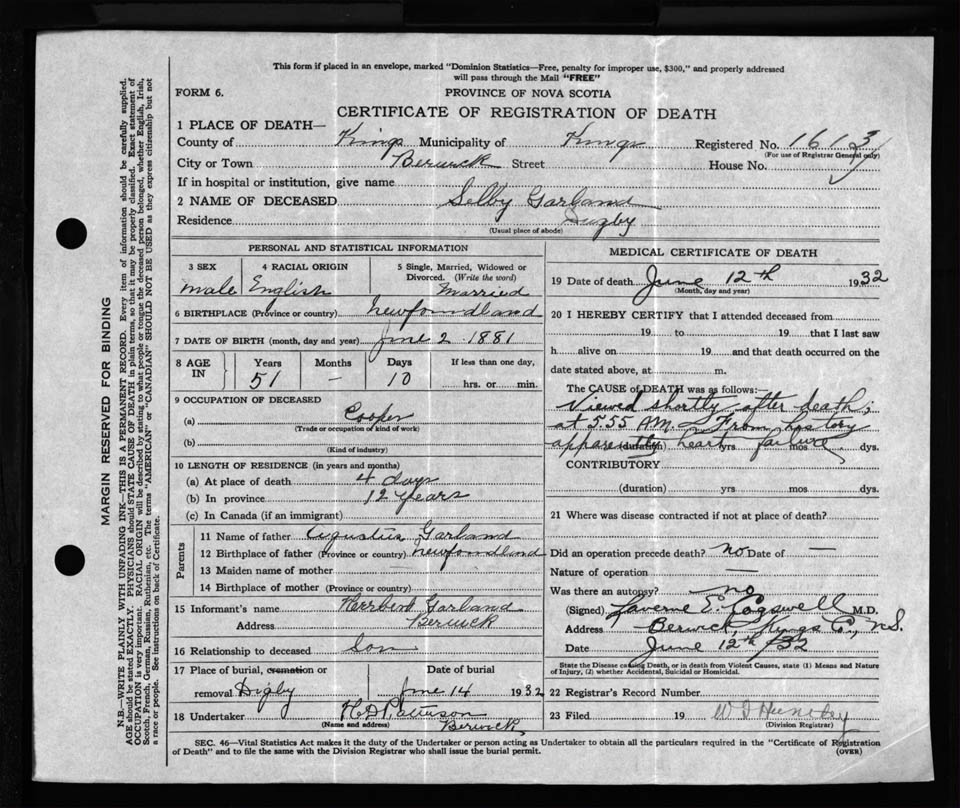 This form if placed in an envelope, marked "Dominion Statistics—Free, penalty for improper use, $300," and properly addressed
will pass through the Mail "FREE"
FORM 6.
PROVINCE OF NOVA SCOTIA
CERTIFICATE OF REGISTRATION OF DEATH
1 PLACE OF DEATH—
County of Kings Municipality of Kings Registered No. 1613
(For use of Registrar General only)
City or Town Berwick Street House No.
If in hospital or institution, give name
2 NAME OF DECEASED Selby Garland
Residence Digby
(Usual place of abode)
PERSONAL AND STATISTICAL INFORMATION
3 SEX 4 RACIAL ORIGIN 5 Single, Married, Widowed or
Divorced. (Write the word)
male English Married
6 BIRTHPLACE (Province or country) Newfoundland
7 DATE OF BIRTH (month, day and year) June 2 1881
8 AGE IN Years Months Days If less than one day,
51 — 10 hrs. or min.
9 OCCUPATION OF DECEASED
(a) Cooper
(Trade or occupation of kind of work)
(b)
(Kind of industry)
10 LENGTH OF RESIDENCE (in years and months)
(a) At place of death 4 days
(b) In province 12 years
(c) In Canada (if an immigrant)
Parents
11 Name of father Garland
12 Birthplace of father (Province or country) Newfoundland
13 Maiden name of mother
14 Birthplace of mother (Province or country)
15 Informant's name Herbert Garland
Address Berwick
16 Relationship to deceased Son
17 Place of burial, cremation or Date of burial
removal Digby June 14 1932
18 Undertaker Berwick
(Name and address)
MEDICAL CERTIFICATE OF DEATH
19 Date of death June 12th 1932
(Month, day and year)
20 I HEREBY CERTIFY that I attended deceased from
19 to 19 that I last saw
h alive on 19 and that death occurred on the
date stated above, at m.
The CAUSE of DEATH was as follows:—
Viewed shortly after death;
at 5.55 AM — From history
apparently heart failure
(duration) yrs mos dys.
CONTRIBUTORY
(duration) yrs mos dys.
21 Where was disease contracted if not at place of death?
Did an operation precede death? no Date of —
Nature of operation —
Was there an autopsy? no
(Signed) Laverne E. Cogswell M.D.
Address Berwick, Kings Co., N.S.
Date June 12th/32
State the Disease causing Death, or in death from Violent Causes, state (1) Means and Nature
of Injury, (2) whether Accidental, Suicidal or Homicidal.
22 Registrar's Record Number
23 Filed 19
(Division Registrar)
SEC. 46—Vital Statistics Act makes it the duty of the Undertaker or person acting as Undertaker to obtain all the particulars required in the "Certificate of Registration
of Death" and to file the same with the Division Registrar who shall issue the burial permit.
(OVER)
MARGIN RESERVED FOR BINDING
N.B.—WRITE PLAINLY WITH UNFADING INK—THIS IS A PERMANENT RECORD. Every item of information should be carefully supplied.
AGE should be stated EXACTLY. PHYSICIANS should STATE CAUSE OF DEATH in plain terms, so that it may be properly classified. Exact statement of
OCCUPATION is very important. RACIAL ORIGIN will be described by stating to what people or tongue the deceased person belonged, whether English, Irish,
Scotch, French, German, Russian, Ruthenian, etc. The terms "AMERICAN" or "CANADIAN" SHOULD NOT BE USED as they express citizenship but not
a race or people. See instructions on back of Certificate.